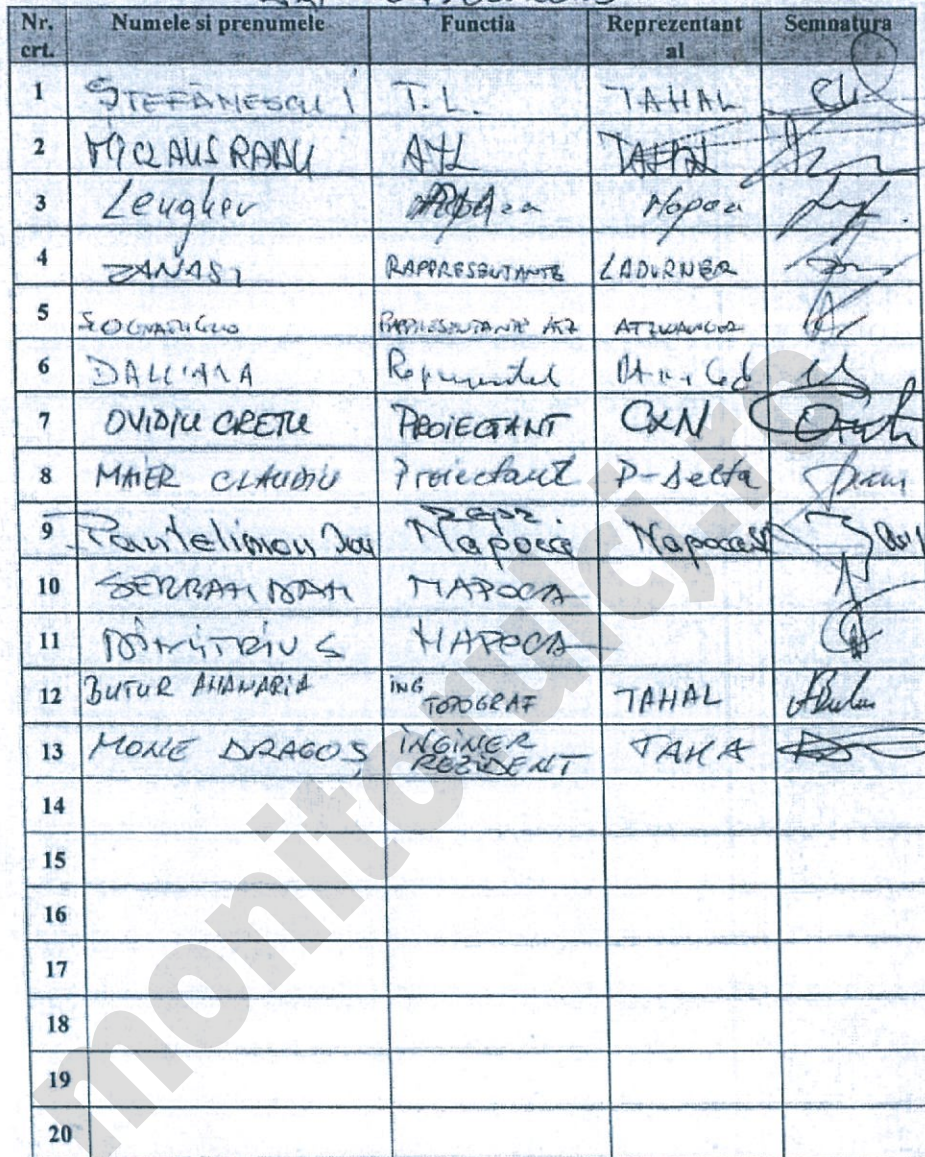 Nr. crt. Numele si prenumele Functia Reprezentant al Semnatura
1 ȘTEFĂNESCU I T.L. TAHAL
2 MICLAUS RADU ATL TAHAL
3 Lengher Napoca
4 ZANASI RAPPRESENTANTE LADURNER
5 RAPPRESENTANTE ATZ ATZWANGER
6 DALL'ARA
7 OVIDIU CRETU PROIECTANT CXN
8 MAIER CLAUDIU Proiectant P-Delta
9 Pantelimon Repr. Napoca Napoca
10 SERBAN DAN NAPOCA
11 DIMITRIU S NAPOCA
12 BUTUR ANAMARIA ING TOPOGRAF TAHAL
13 MONE DRAGOȘ INGINER REZIDENT TAHA
14
15
16
17
18
19
20
monitorulcj.ro